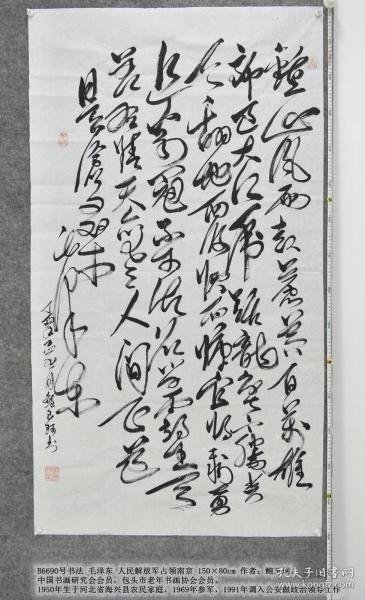 鐘山風雨起蒼黄百万雄
師过大江虎踞龍盤今勝昔
天翻地覆慨而慷宜将剩勇
追窮寇不可沽名学霸王天
若有情天亦老人间正道
是滄桑
毛泽东
B6690号书法 毛泽东 人民解放军占领南京 150×80cm 作者：鲍
中国书画研究会会员。包头市老年书画协会会员。
1950年生于河北省海兴县农民家庭，1969年参军，1991年调入公安做政治领导工作